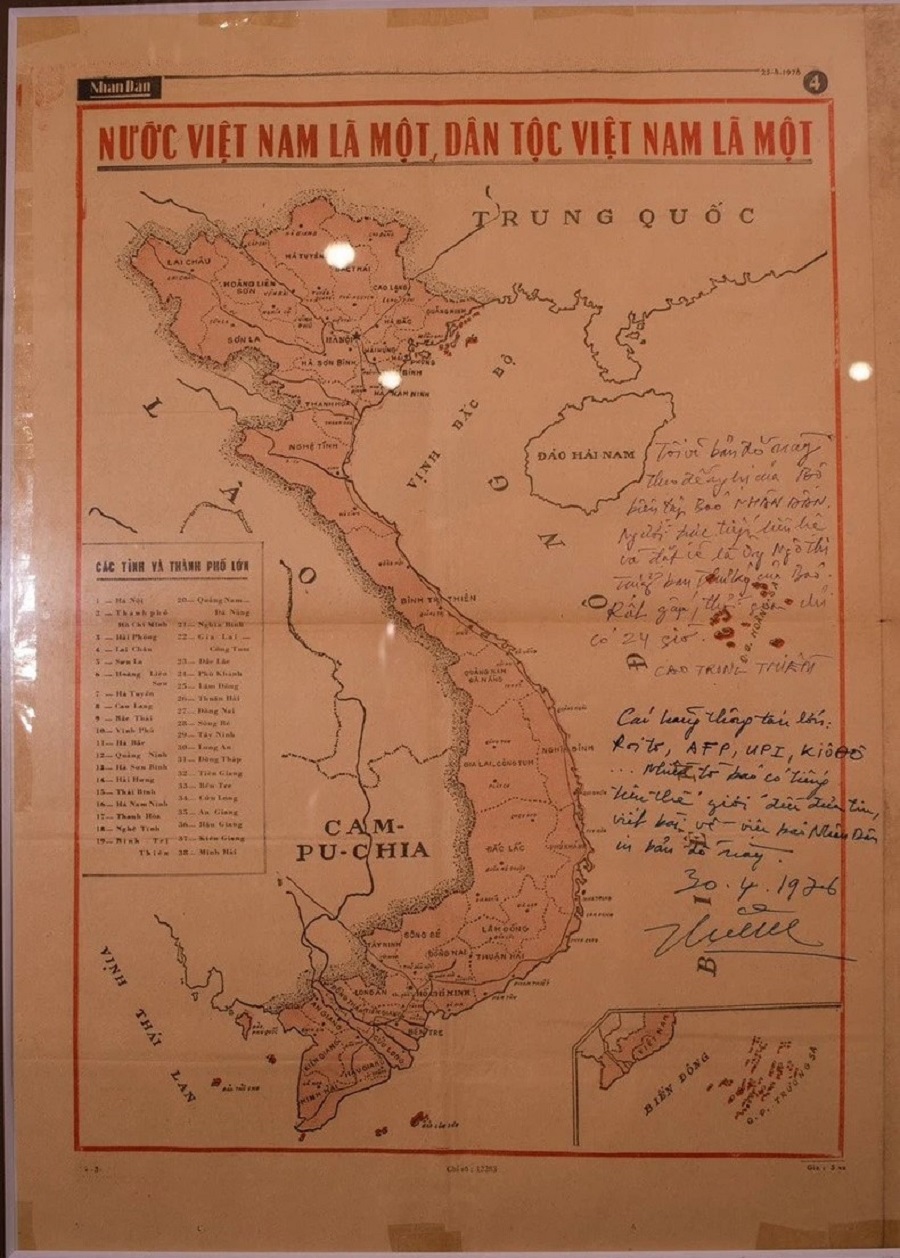 Nhân Dân
4
NƯỚC VIỆT NAM LÀ MỘT, DÂN TỘC VIỆT NAM LÀ MỘT
TRUNG QUỐC
LAI CHÂU
HÀ TUYÊN
HOÀNG LIÊN
SƠN
CAO LẠNG
SƠN LA
HÀ NỘI
HÀ BẮC
HÀ SƠN BÌNH
THANH HÓA
NGHỆ TĨNH
VỊNH BẮC BỘ
ĐẢO HẢI NAM
LÀO
BÌNH TRỊ THIÊN
QUẢNG NAM
ĐÀ NẴNG
NGHĨA BÌNH
GIA LAI, CÔNG TUM
ĐẮC LẮC
LÂM ĐỒNG
SÔNG BÉ
TÂY NINH
ĐỒNG NAI
THUẬN HẢI
LONG AN
BẾN TRE
AN GIANG
KIÊN GIANG
CỬU LONG
MINH HẢI
CÁC TỈNH VÀ THÀNH PHỐ LỚN
1 — Hà Nội
2 — Thành phố
Hồ Chí Minh
3 — Hải Phòng
4 — Lai Châu
5 — Sơn La
6 — Hoàng Liên
Sơn
7 — Hà Tuyên
8 — Cao Lạng
9 — Bắc Thái
10 — Vĩnh Phú
11 — Hà Bắc
12 — Quảng Ninh
13 — Hà Sơn Bình
14 — Hải Hưng
15 — Thái Bình
16 — Hà Nam Ninh
17 — Thanh Hóa
18 — Nghệ Tĩnh
19 — Bình Trị
Thiên
20 — Quảng Nam —
Đà Nẵng
21 — Nghĩa Bình
22 — Gia Lai —
Công Tum
23 — Đắc Lắc
24 — Phú Khánh
25 — Lâm Đồng
26 — Thuận Hải
27 — Đồng Nai
28 — Sông Bé
29 — Tây Ninh
30 — Long An
31 — Đồng Tháp
32 — Tiền Giang
33 — Bến Tre
34 — Cửu Long
35 — An Giang
36 — Hậu Giang
37 — Kiên Giang
38 — Minh Hải
CAM-
PU-CHIA
VỊNH THÁI LAN
BIỂN ĐÔNG
Tôi vẽ bản đồ này
theo đề nghị của Bộ
biên tập Báo NHÂN DÂN.
Người trực tiếp liên hệ
và đặt vẽ là Ngô Thi
của Báo.
Rất gấp, thời gian chỉ
có 24 giờ.
CAO TRỌNG THIỀM
Các hãng thông tấn lớn:
Roitơ, AFP, UPI, KIÔĐÔ
... Nhiều tờ báo có tiếng
trên thế giới đều đưa tin,
viết bài về việc báo Nhân Dân
in bản đồ này.
30.4.1976
VIỆT NAM
BIỂN ĐÔNG
Q.Đ. TRƯỜNG SA